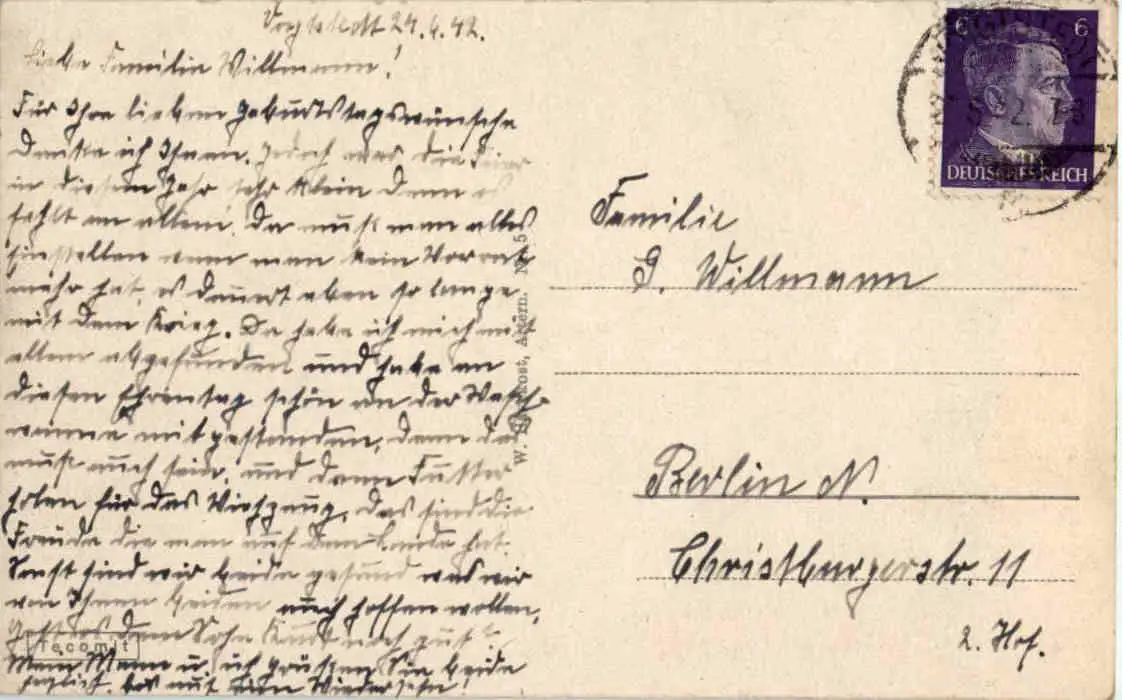 Voigtstedt 24.6.42.
Liebe Familie Willmann!
Für Ihre lieben Geburtstagswünsche
danke ich Ihnen. Jedoch war die Feier
in diesem Jahr sehr klein denn es
fehlt an allem. Da muß man alles
hinstellen wenn man kein Vorrat
mehr hat, es dauert eben so lange
mit dem Krieg. Da habe ich mich mit
allem abgefunden und habe an
diesen Ehrentag schön an der Wasch-
wanne mitgestanden, denn das
muß auch sein, und dann Futter
holen für das Viehzeug, das sind die
Freude die man auf dem Lande hat.
Sonst sind wir beide gesund was wir
von Ihnen beiden auch hoffen wollen,
Geht es dem Sohn Kurt noch gut?
Mein Mann u. ich grüßen Sie beide
herzlich, bis auf ein Wiedersehn!
W. Probst, Artern. N. 5
6 6
DEUTSCHES REICH
Familie
G. Willmann
Berlin N.
Christburgerstr. 11
2. Hof.
recomit